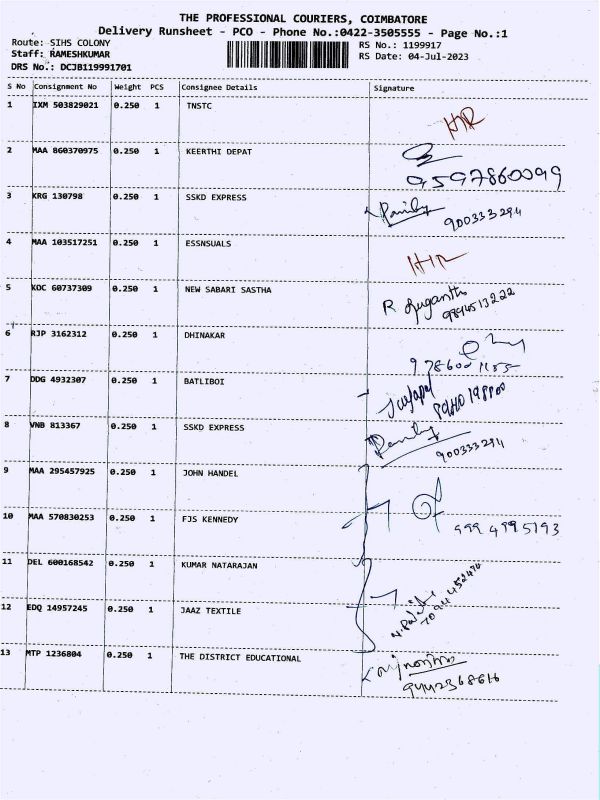 THE PROFESSIONAL COURIERS, COIMBATORE
Delivery Runsheet - PCO - Phone No.:0422-3505555 - Page No.:1
Route: SIHS COLONY
RS No.: 1199917
Staff: RAMESHKUMAR
RS Date: 04-Jul-2023
DRS No.: DCJB119991701
S No Consignment No Weight PCS Consignee Details Signature
1 IXM 503829021 0.250 1 TNSTC
2 MAA 860370975 0.250 1 KEERTHI DEPAT
9597860099
3 KRG 130798 0.250 1 SSKD EXPRESS
900333294
4 MAA 103517251 0.250 1 ESSNSUALS
5 KOC 60737309 0.250 1 NEW SABARI SASTHA
9894513222
6 RJP 3162312 0.250 1 DHINAKAR
7 DDG 4932307 0.250 1 BATLIBOI
8 VNB 813367 0.250 1 SSKD EXPRESS
900333294
9 MAA 295457925 0.250 1 JOHN HANDEL
10 MAA 570830253 0.250 1 FJS KENNEDY
9994995193
11 DEL 600168542 0.250 1 KUMAR NATARAJAN
12 EDQ 14957245 0.250 1 JAAZ TEXTILE
13 MTP 1236804 0.250 1 THE DISTRICT EDUCATIONAL
9442368616